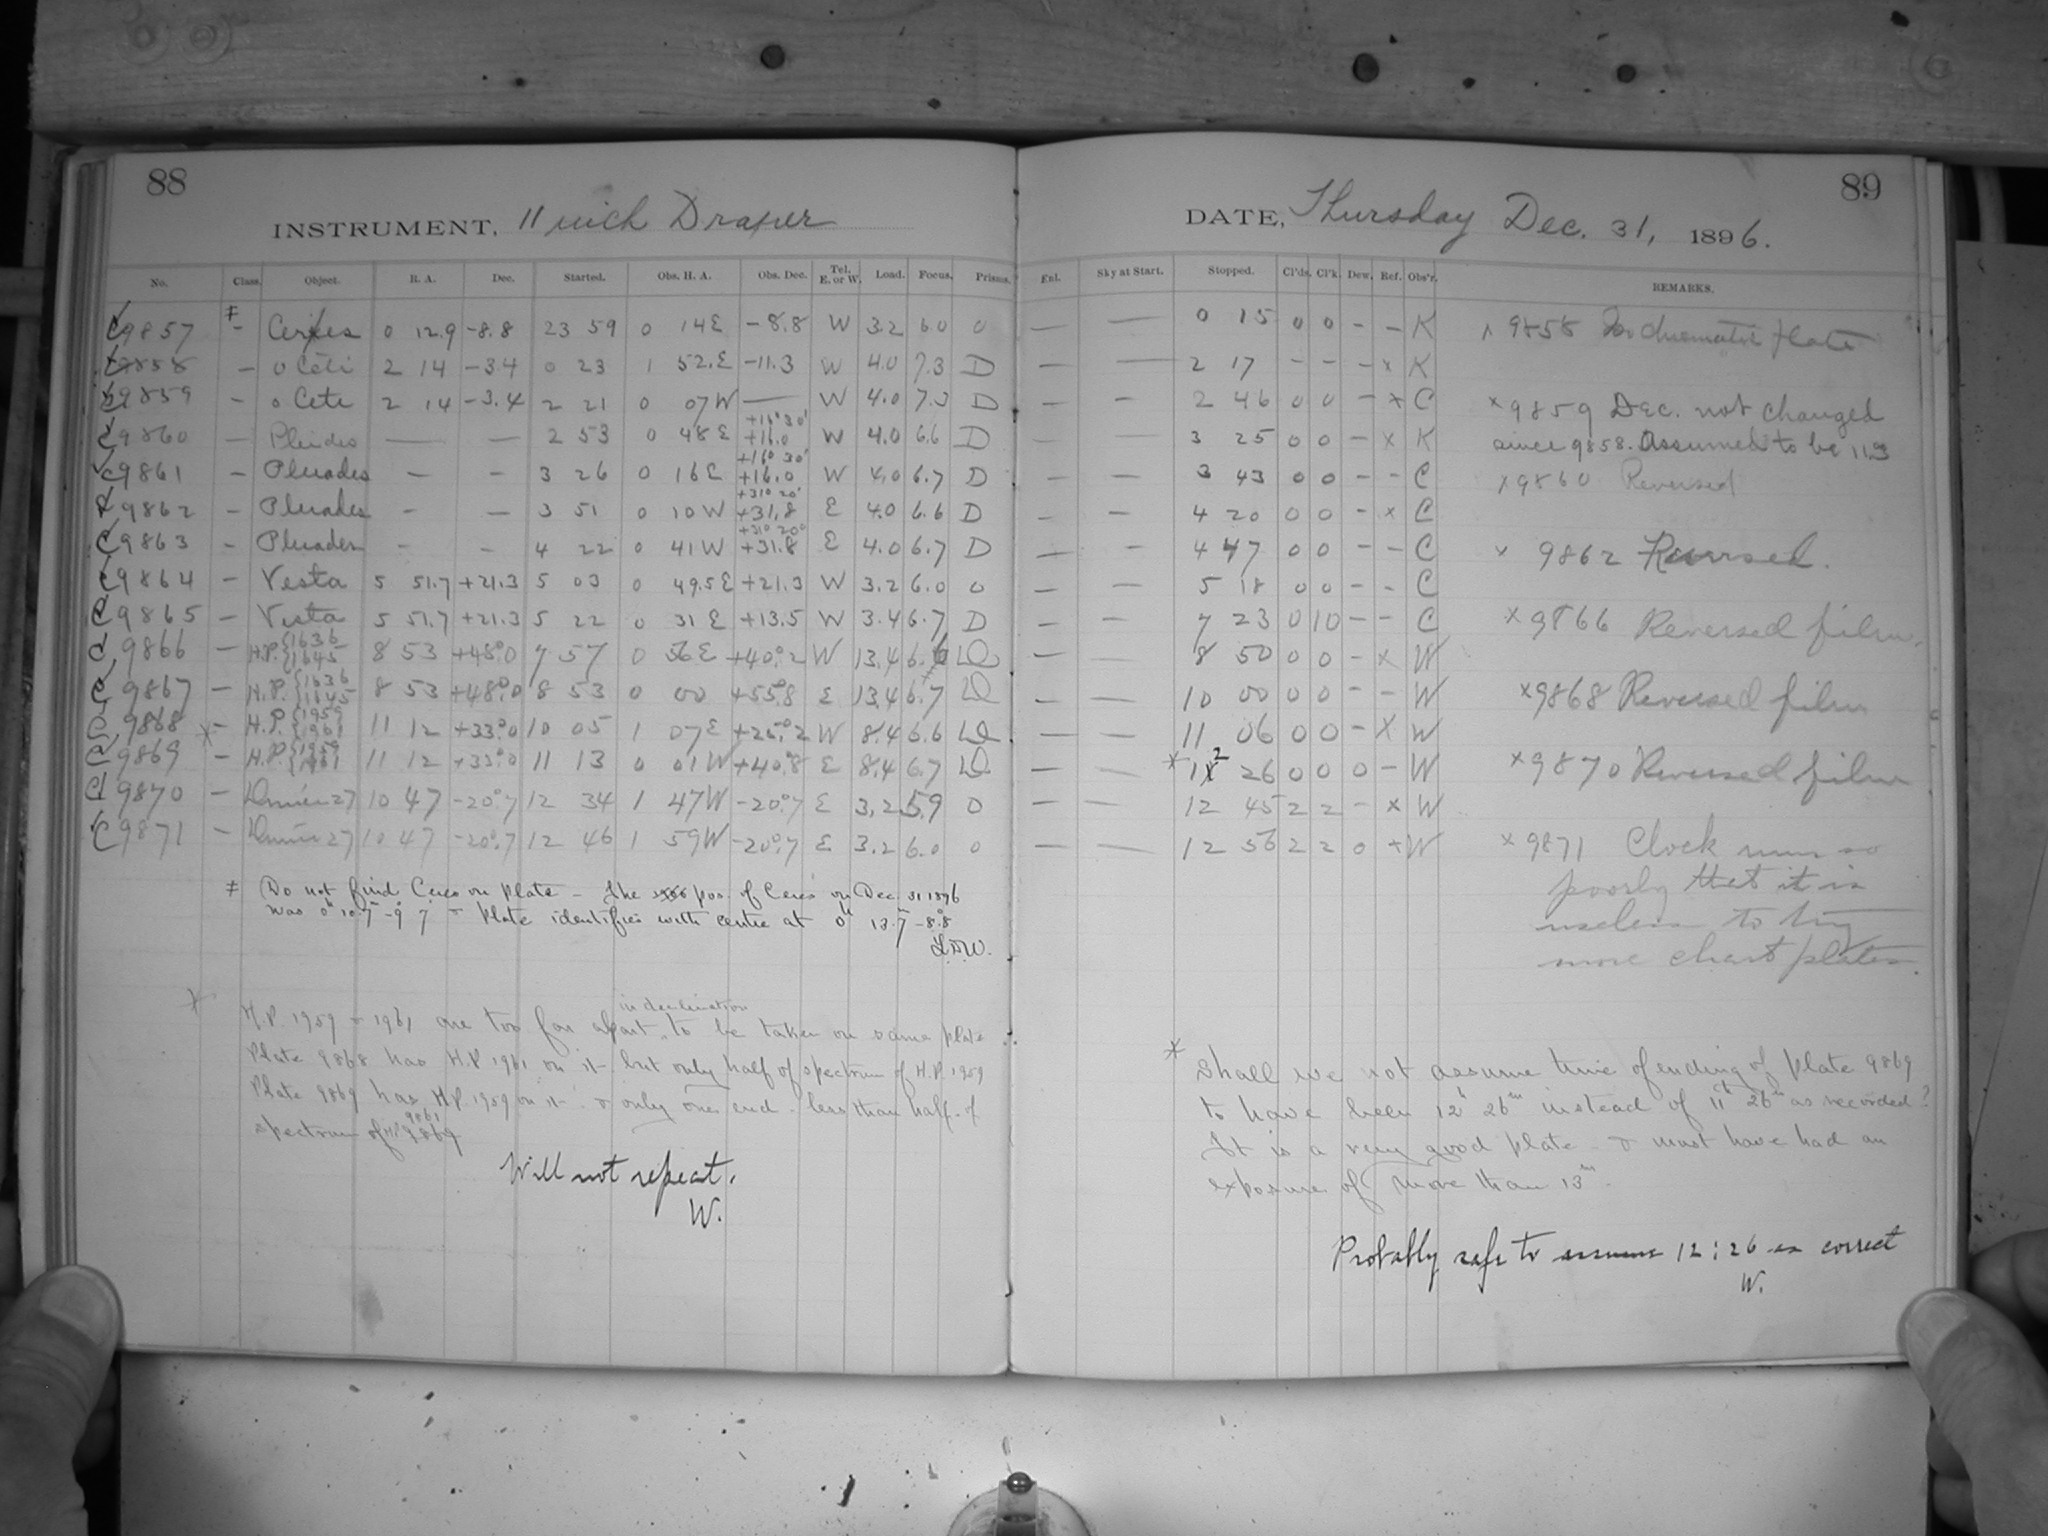 88
INSTRUMENT, 11 inch Draper
No. Class. Object. R. A. Dec. Started. Obs. H. A. Obs. Dec. Tel. E. or W. Load. Focus. Prisms.
C9857 ‡ - Ceres 0 12.9 -8.8 23 59 0 14E -8.8 W 3.2 6.0 0
C9858 - o Ceti 2 14 -3.4 0 23 1 52.E -11.3 W 4.0 7.3 D
C9859 - o Cete 2 14 -3.4 2 21 0 07W — W 4.0 7.3 D
C9860 - Pleides — — 2 53 0 48E +16°30' +16.0 W 4.0 6.6 D
C9861 - Pleiades - - 3 26 0 16E +16°30' +16.0 W 4.0 6.7 D
C9862 - Pleiades - - 3 51 0 10W +31°20' +31.8 E 4.0 6.6 D
C9863 - Pleiades - - 4 22 0 41W +31°20' +31.8 E 4.0 6.7 D
C9864 - Vesta 5 51.7 +21.3 5 03 0 49.5E +21.3 W 3.2 6.0 0
C9865 - Vesta 5 51.7 +21.3 5 22 0 31E +13.5 W 3.4 6.7 D
C9866 - H.P. {1636 1645 8 53 +48°.0 7 57 0 56E +40°.2 W 13.4 6.6
C9867 - H.P. {1636 1645 8 53 +48°.0 8 53 0 00 +55°.8 E 13.4 6.7
C9868 * - H.P. {1959 1961 11 12 +33°.0 10 05 1 07E +25°.2 W 8.4 6.6
C9869 - H.P. {1959 1961 11 12 +33°.0 11 13 0 01W +40°.8 E 8.4 6.7
C9870 - 27 10 47 -20°.7 12 34 1 47W -20°.7 E 3.2 5.9 0
C9871 - 27 10 47 -20°.7 12 46 1 59W -20°.7 E 3.2 6.0 0
‡ Do not find Ceres on plate - The pos. of Ceres on Dec. 31 1896
was 0h 10m.7 -9°7 - Plate identifies with centre at 0h 13m.7 -8°.8
L.D.W.
* H.P. 1959 + 1961 are too far apart in declination to be taken on same plate
Plate 9868 has H.P. 1961 on it - but only half of spectrum of H.P. 1959
Plate 9869 has H.P. 1959 on it - & only one end - less than half - of
spectrum of H.P. 9869 9861
Will not repeat.
W.
89
DATE, Thursday Dec. 31, 1896.
Enl. Sky at Start. Stopped. Cl'ds. Cl'k. Dew. Ref. Obs'r. REMARKS.
— — 0 15 0 0 - - K x 9858 Isochromatic plate
— — 2 17 - - - x K
— — 2 46 0 0 - x C x 9859 Dec. not changed
— — 3 25 0 0 - x K since 9858. Assumed to be 11.3
— — 3 43 0 0 - - C x 9860 Reversed
— — 4 20 0 0 - x C
— — 4 47 0 0 - - C x 9862 Reversed.
— — 5 18 0 0 - - C
— — 7 23 0 10 - - C x 9866 Reversed film.
— — 8 50 0 0 - x W
— — 10 00 0 0 - - W x 9868 Reversed film
— — 11 06 0 0 - x W
— — * 12 26 0 0 0 - W x 9870 Reversed film
— — 12 45 2 2 - x W
— — 12 56 2 2 0 + W x 9871 Clock runs so
poorly that it is
useless to try
more chart plates.
* Shall we not assume time of ending of plate 9869
to have been 12h 26m instead of 11h 26m as recorded?
It is a very good plate - & must have had an
exposure of more than 13m.
Probably safe to assume 12:26 as correct
W.